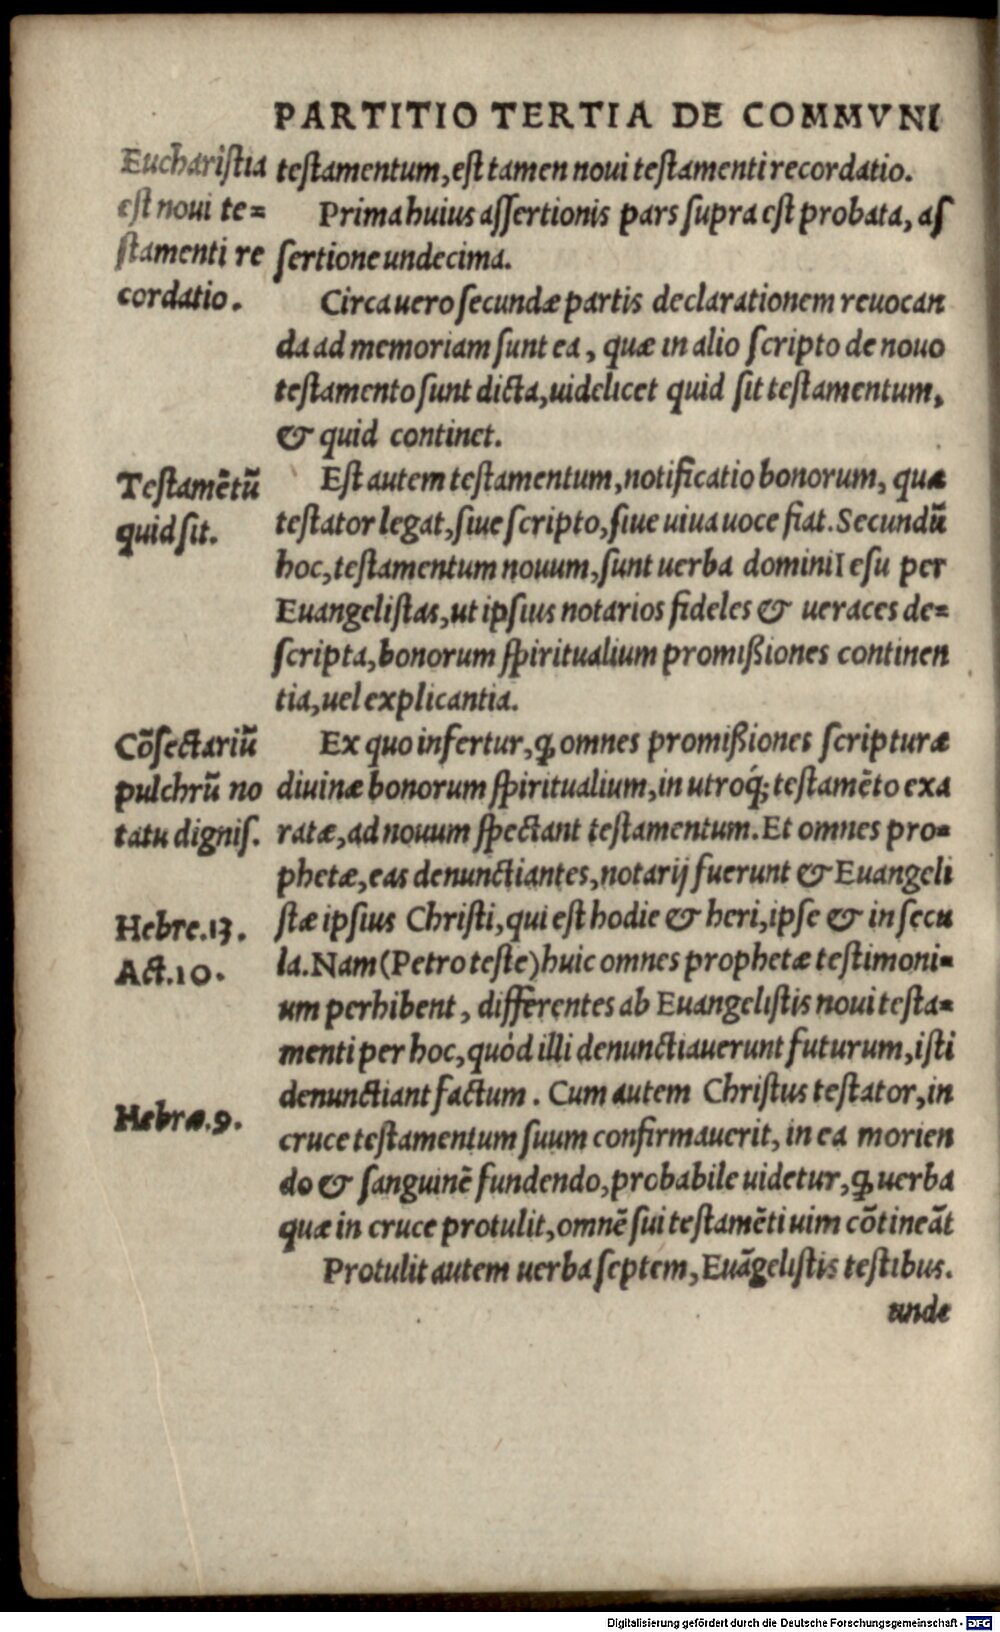 PARTITIO TERTIA DE COMMVNI
Euchariſtia
eſt noui te=
ſtamenti re
cordatio.
teſtamentum, eſt tamen noui teſtamenti recordatio.
Prima huius aſſertionis pars ſupra eſt probata, aſ
ſertione undecima.
Circa uero ſecundæ partis declarationem reuocan
da ad memoriam ſunt ea, quæ in alio ſcripto de nouo
teſtamento ſunt dicta, uidelicet quid ſit teſtamentum,
& quid continet.
Teſtamẽtũ
quid ſit.
Eſt autem teſtamentum, notificatio bonorum, quæ
teſtator legat, ſiue ſcripto, ſiue uiua uoce fiat. Secundũ
hoc, teſtamentum nouum, ſunt uerba domini Ieſu per
Euangeliſtas, ut ipſius notarios fideles & ueraces de=
ſcripta, bonorum ſpiritualium promißiones continen
tia, uel explicantia.
Cõſectariũ
pulchrũ no
tatu digniſ.
Ex quo infertur, ꝙ omnes promißiones ſcripturæ
diuinæ bonorum ſpiritualium, in utroq́; teſtamẽto exa
ratæ, ad nouum ſpectant teſtamentum. Et omnes pro=
phetæ, eas denunctiantes, notarij fuerunt & Euangeli
Hebre.13.
Act.10.
ſtæ ipſius Chriſti, qui eſt hodie & heri, ipſe & in ſecu
la. Nam (Petro teſte) huic omnes prophetæ teſtimoni=
um perhibent, differentes ab Euangeliſtis noui teſta=
menti per hoc, quòd illi denunctiauerunt futurum, iſti
denunctiant factum. Cum autem Chriſtus teſtator, in
Hebræ.9.
cruce teſtamentum ſuum confirmauerit, in ea morien
do & ſanguinẽ fundendo, probabile uidetur, ꝙ uerba
quæ in cruce protulit, omnẽ ſui teſtamẽti uim cõtineãt
Protulit autem uerba ſeptem, Euãgeliſtis teſtibus.
unde
Digitalisierung gefördert durch die Deutsche Forschungsgemeinschaft - DFG